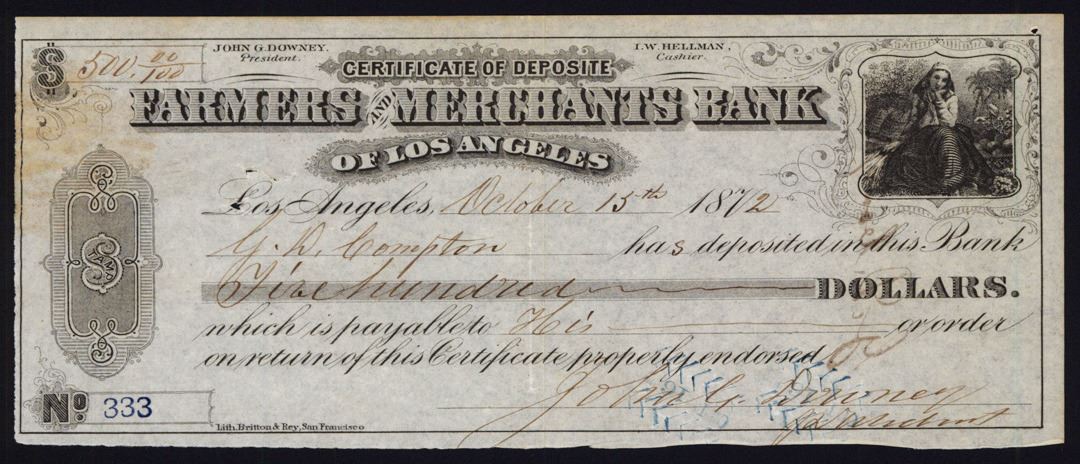 $ 500.00/100
JOHN G. DOWNEY. President.
I. W. HELLMAN, Cashier.
CERTIFICATE OF DEPOSITE
FARMERS AND MERCHANTS BANK
OF LOS ANGELES
Los Angeles, October 15th 1872
G. D. Compton has deposited in this Bank
Five hundred DOLLARS.
which is payable to His or order
on return of this Certificate properly endorsed
John G. Downey
President
STAMP
No. 333
Lith. Britton & Rey, San Francisco